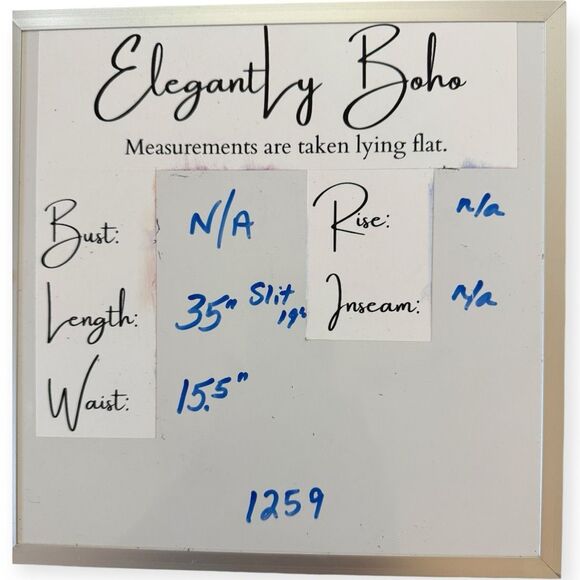 Elegantly Boho
Measurements are taken lying flat.
Bust: N/A Rise: n/a
Length: 35" Slit 19" Inseam: n/a
Waist: 15.5"
1259